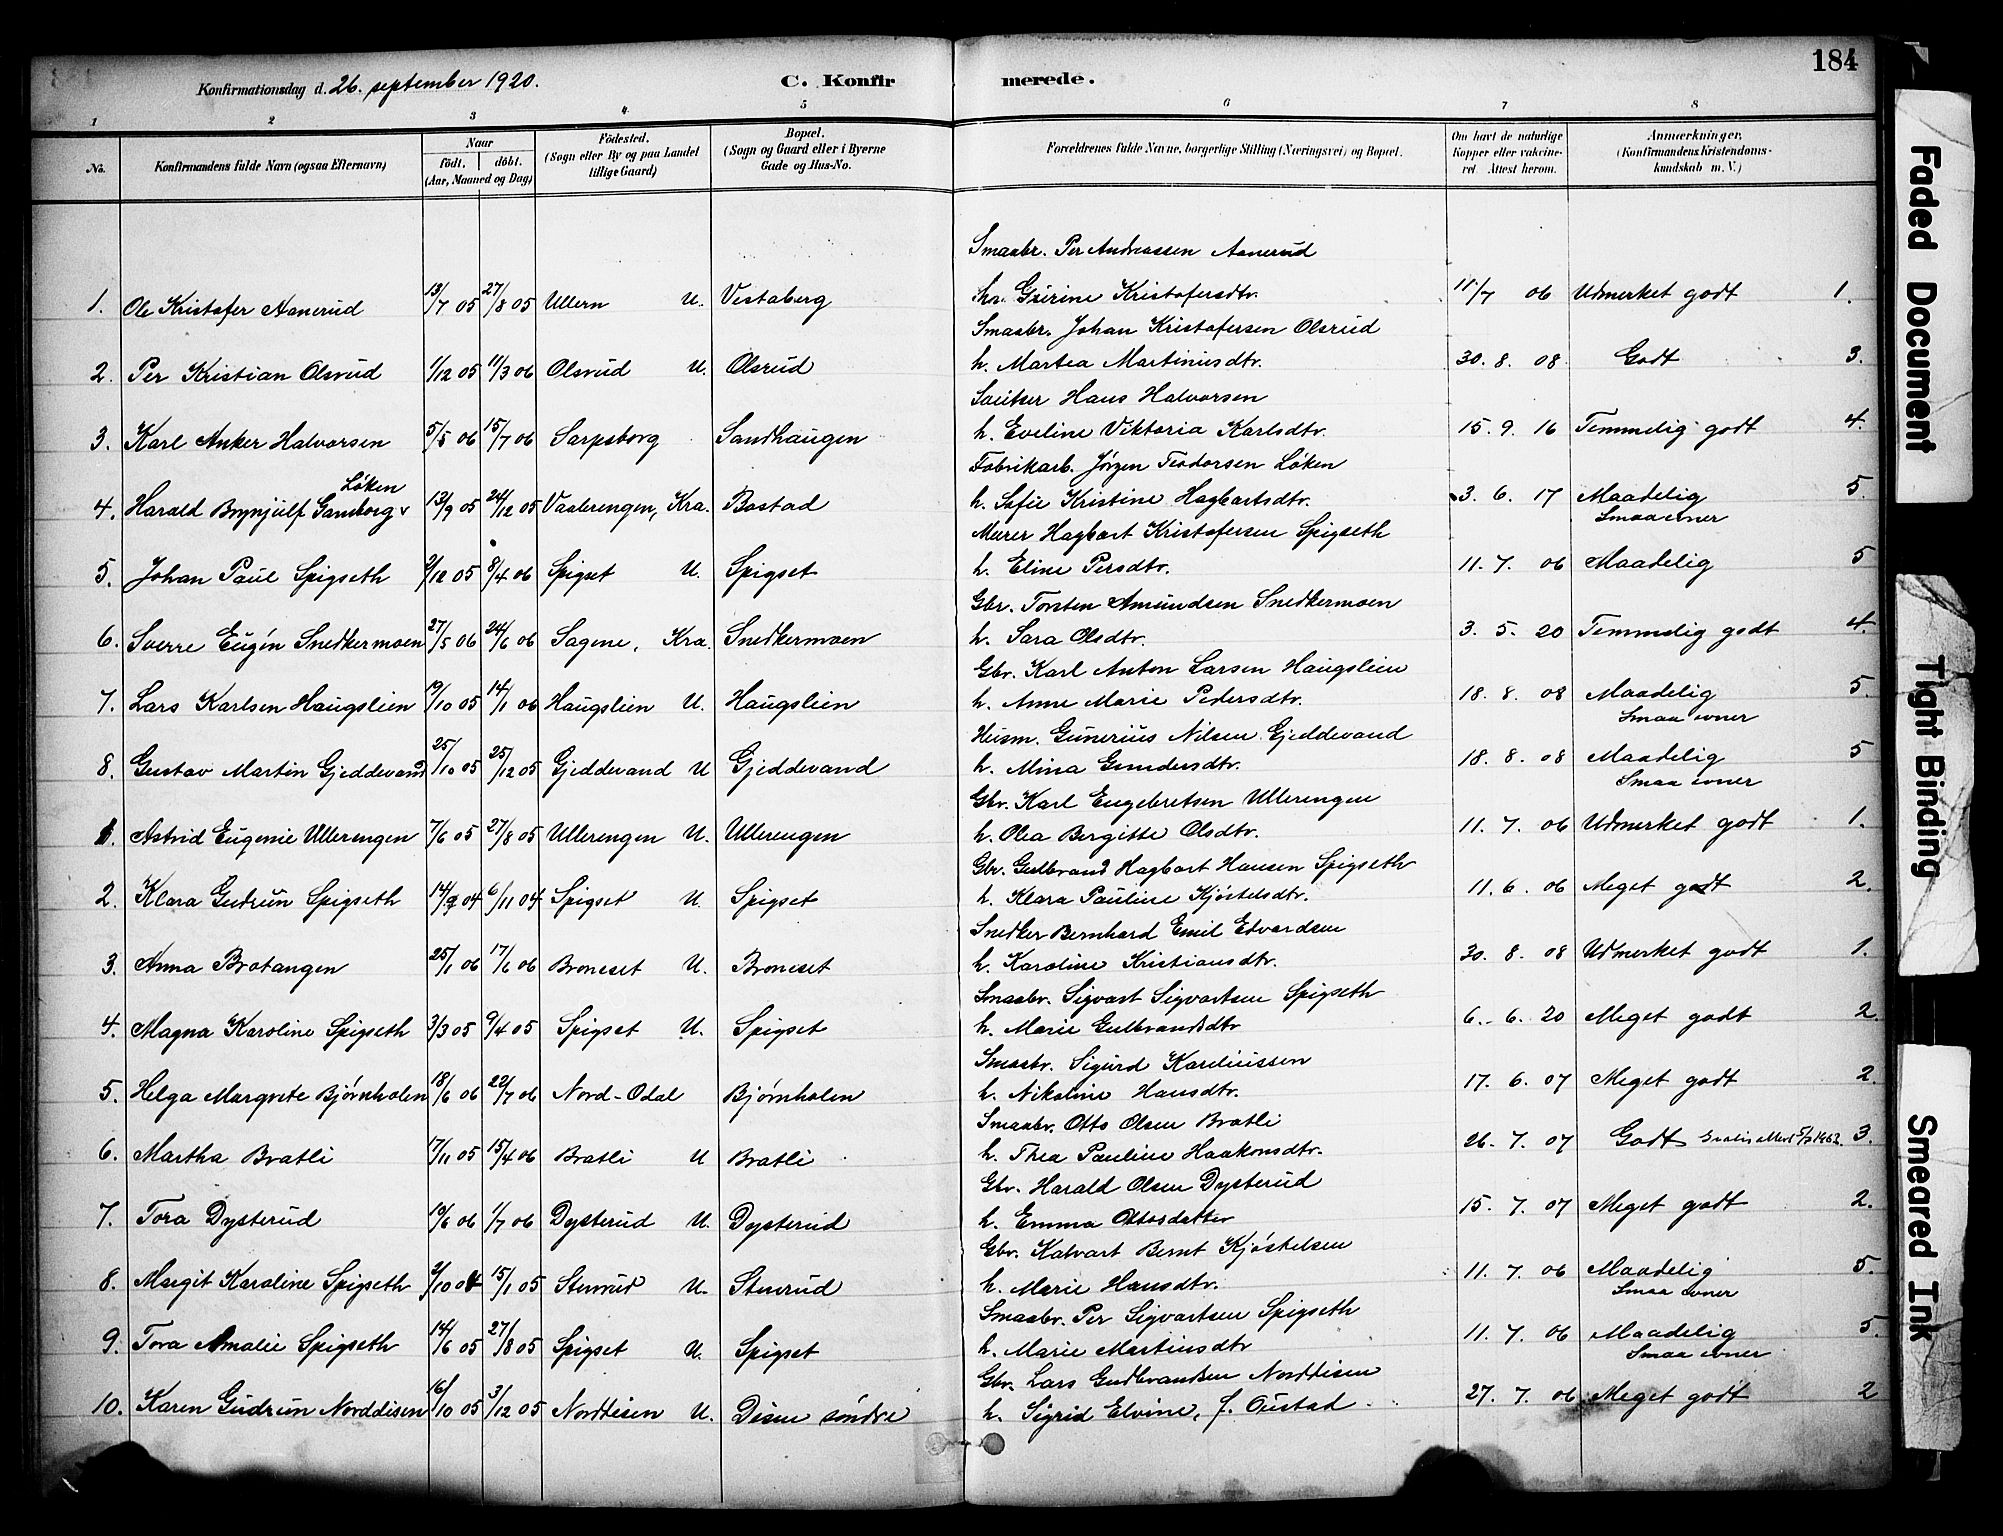 184
Konfirmationsdag d. 26. september 1920. C. Konfirmerede.
1 2 3 4 5 6 7 8
No. Konfirmandens fulde Navn (ogsaa Efternavn) Naar født. døbt. (Aar, Maaned og Dag) Fødested. (Sogn eller By og paa Landet tillige Gaard) Bopæl. (Sogn og Gaard eller i Byerne Gade og Hus-No. Forældrenes fulde Navne, borgerlige Stilling (Næringsvei) og Bopæl. Om havt de naturlige Kopper eller vakcineret. Attest herom. Anmærkninger, (Konfirmandens Kristendomskundskab m. V.)
Smaabr. Per Andreassen Aanerud
1. Ole Kristofer Aanerud 13/7 05 27/8 05 Ullern U. Vestaberg h. Gurine Kristofersdtr. 11/7 06 Udmerket godt 1.
Smaabr. Johan Kristofersen Olsrud
2. Per Kristian Olsrud 1/12 05 11/3 06 Olsrud U. Olsrud h. Martea Martinusdtr. 30. 8. 08 Godt 3.
Sveitser Hans Halvorsen
3. Karl Anker Halvorsen 5/5 06 15/7 06 Sarpsborg Sandhaugen h. Eveline Viktoria Karlsdtr. 15. 9. 16 Temmelig godt 4.
Fabrikarb. Jørgen Teodorsen Løken
4. Harald Brynjulf Gamborg Løken 13/9 05 24/12 05 Vaalerengen, Kra. Bostad h. Sofie Kristine Hagbartsdtr. 3. 6. 17 Maadelig 5.
Smaa evner
Murer Hagbart Kristofersen Spigseth
5. Johan Paul Spigseth 2/12 05 8/4 06 Spigset U. Spigset h. Eline Persdtr. 11. 7. 06 Maadelig 5
Gbr. Torsten Amundsen Snedkermoen
6. Sverre Eugén Snedkermoen 27/5 06 24/6 06 Sagene, Kra. Snedkermoen h. Sara Olsdtr. 3. 5. 20 Temmelig godt 4.
Gbr. Karl Anton Larsen Haugslien
7. Lars Karlsen Haugslien 19/10 05 14/1 06 Haugslien U. Haugslien h. Anne Marie Pedersdtr. 18. 8. 08 Maadelig 5.
Smaa evner
Husm. Gunerius Nilsen Gjeddevand
8. Gustav Martin Gjeddevand 25/10 05 25/12 05 Gjeddevand U Gjeddevand h. Mina Gundersdtr. 18. 8. 08 Maadelig 5
Smaa evner
Gbr. Karl Engebretsen Ullerengen
1. Astrid Eugenie Ullerengen 7/6 05 27/8 05 Ullerengen U. Ullerengen h. Olea Bergitte Olsdtr. 11. 7. 06 Udmerket godt 1.
Gbr. Gulbrand Hagbart Hansen Spigseth
2. Klara Gudrun Spigseth 14/9 04 6/11 04 Spigset U. Spigset h. Klara Pauline Kjøstelsdtr. 11. 6. 06 Meget godt 2.
Snedker Bernhard Emil Edvardsen
3. Anna Brotangen 25/1 06 17/6 06 Broneset U. Broneset h. Karoline Kristiansdtr. 30. 8. 08 Udmerket godt 1.
Smaabr. Sigvart Sigvartsen Spigseth
4. Magna Karoline Spigseth 3/3 05 9/4 05 Spigset U. Spigset h. Marie Gulbrandsdtr 6. 6. 20 Meget godt 2.
Smaabr. Sigurd Kareliussen
5. Helga Margrete Bjørnholen 18/6 06 22/7 06 Nord-Odal Bjørnholen h. Nikoline Hansdtr. 17. 6. 07 Meget godt 2.
Smaabr. Otto Olsen Bratli
6. Martha Bratli 17/11 05 15/4 06 Bratli U Bratli h. Thea Pauline Haakonsdtr. 26. 7. 07 Godt 3.
Gbr. Harald Olsen Dysterud
7. Tora Dysterud 10/6 06 1/7 06 Dysterud U. Dysterud h. Emma Ottosdatter 15. 7. 07 Meget godt 2.
Gbr. Kalvart Bernt Kjøstelsen
8. Margit Karoline Spigseth 2/10 04 15/1 05 Stenrud U. Stenrud h. Marie Hansdtr. 11. 7. 06 Maadelig 5.
Smaa evner
Smaabr. Per Sigvartsen Spigseth
9. Tora Amalie Spigseth 14/6 05 27/8 05 Spigset U. Spigset h. Marie Martinsdtr 11. 7. 06 Maadelig 5.
Smaa evner
Gbr. Lars Gudbrandsen Norddisen
10. Karen Gudrun Norddisen 16/10 05 3/12 05 Norddisen U. Disen søndre h. Sigrid Elvine, f. Oustad 27. 7. 06 Meget godt 2
Faded Document
Tight Binding
Smeared Ink